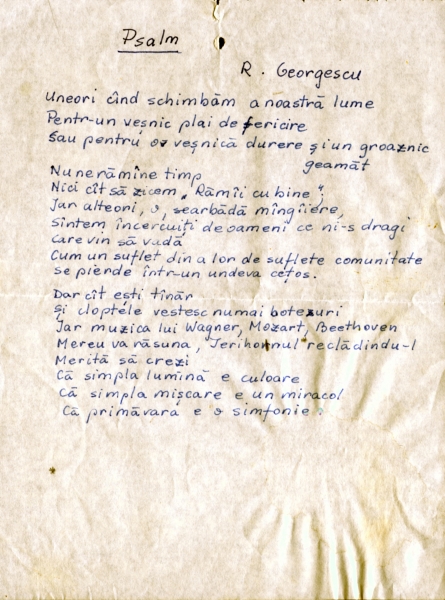 Psalm
R. Georgescu
Uneori cînd schimbăm a noastră lume
Pentr-un veșnic plai de fericire
Sau pentru o veșnică durere și un groaznic
geamăt
Nu ne rămîne timp
Nici cît să zicem „Rămîi cu bine”!
Iar alteori, o, searbădă mîngîiere,
Sîntem încercuiți de oameni ce ni-s dragi
Care vin să vadă
Cum un suflet din a lor de suflete comunitate
se pierde într-un undeva cețos.
Dar cît ești tînăr
și cloptele vestesc numai botezuri
Iar muzica lui Wagner, Mozart, Beethoven
Mereu va răsuna, Ierihonul reclădindu-l
Merită să crezi
Că simpla lumină e culoare
Că simpla mișcare e un miracol
Că primăvara e o simfonie.